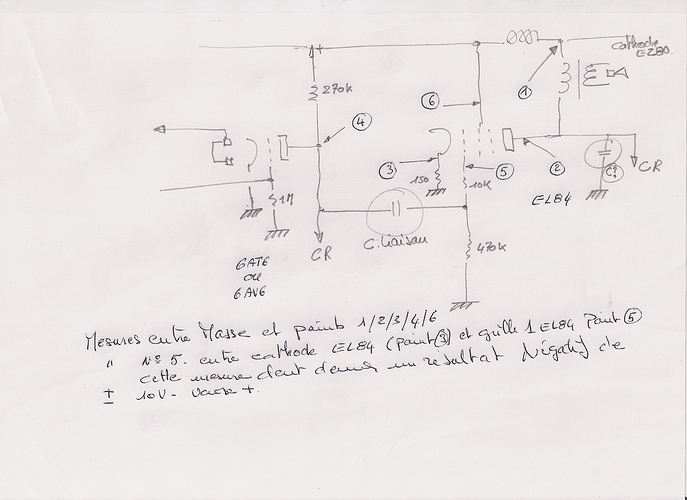 +
cathode
EZ80
270k
1
6
4
3
5
2
150
10K
C?
CR
1M
EL84
C.liaison
470k
CR
6AT6
ou
6AV6
Mesures entre Masse et points 1/2/3/4/6
" N° 5. entre cathode EL84 (point 3) et grille 1 EL84 Point 5
cette mesure doit donner un résultat Négatif de
± 10V - voire +.